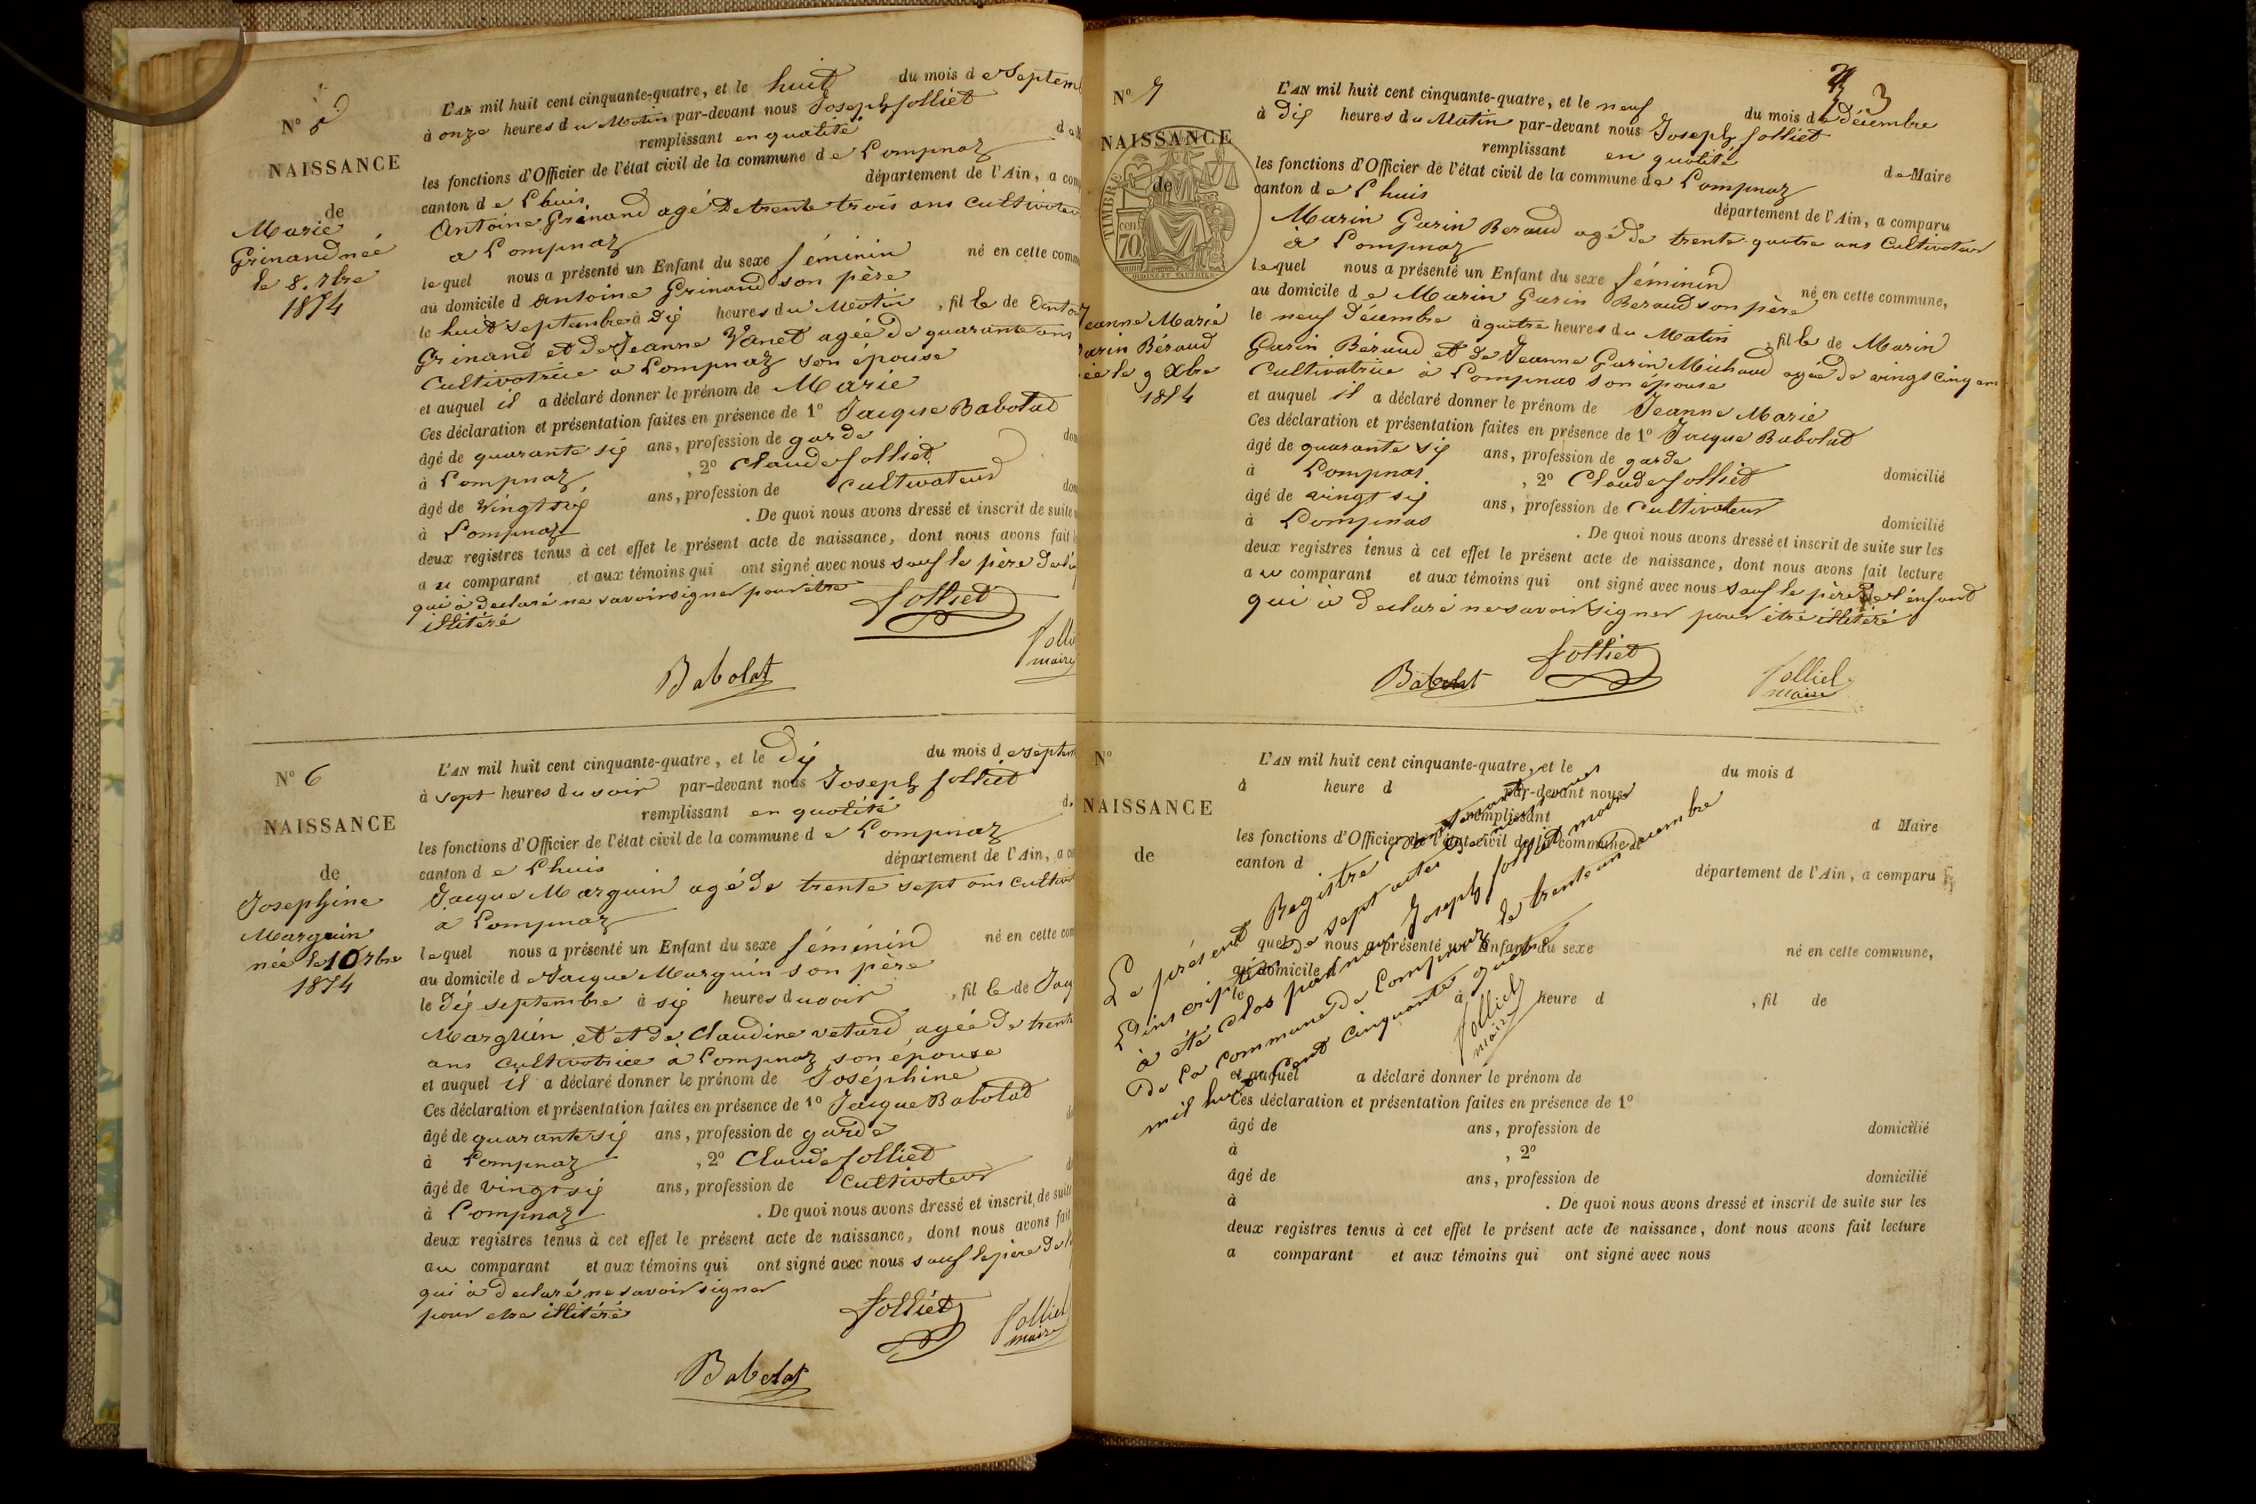 N° 5
NAISSANCE
de
Marie
Grinand née
le 8. 7bre
1854
L'AN mil huit cent cinquante-quatre, et le huit du mois de Septem
à onze heures du Matin par-devant nous Joseph Jolliet
remplissant en qualité
les fonctions d'Officier de l'état civil de la commune de Lompnaz
canton de Lhuis département de l'Ain, a com
Antoine Grinand agé de trente trois ans cultivateur
a Lompnaz
lequel nous a présenté un Enfant du sexe féminin né en cette comm
au domicile d antoine Grinand son père
le huit septembre à Dix heures du Matin, fille de Anto
Grinand et de Jeanne Vanet agée de quarante ans
Cultivatrice à Lompnaz son épouse
et auquel il a déclaré donner le prénom de Marie
Ces déclaration et présentation faites en présence de 1° Jacque Babolat
âgé de quarante six ans, profession de garde dom
à Lompnaz, 2° Claude Jolliet
âgé de Vingt six ans, profession de cultivateur dom
à Lompnaz. De quoi nous avons dressé et inscrit de suite
deux registres tenus à cet effet le présent acte de naissance, dont nous avons fait
au comparant et aux témoins qui ont signé avec nous sauf le père de
qui à declaré ne savoir signer pour être
illitéré
Jolliet
Babolat
maire
N° 6
NAISSANCE
de
Josephine
Marguin
née le 10 7bre
1854
L'AN mil huit cent cinquante-quatre, et le Dix du mois de septem
à sept heures du soir par-devant nous Joseph Jolliet
remplissant en qualité
les fonctions d'Officier de l'état civil de la commune de Lompnaz
canton de Lhuis département de l'Ain, a co
Jacque Marguin agé de trente sept ans cultivat
à Lompnaz
lequel nous a présenté un Enfant du sexe féminin né en cette com
au domicile de Jacque Marguin son père
le Dix septembre à six heures du soir, fille de Jacq
Marguin et et de Claudine veturd agée de trente
ans cultivatrice à Lompnaz son épouse
et auquel il a déclaré donner le prénom de Joséphine
Ces déclaration et présentation faites en présence de 1° Jacque Babolat
âgé de quarante six ans, profession de garde
à Lompnaz, 2° Claude Jolliet
âgé de vingt six ans, profession de Cultivateur
à Lompnaz. De quoi nous avons dressé et inscrit de suite
deux registres tenus à cet effet le présent acte de naissance, dont nous avons fait
au comparant et aux témoins qui ont signé avec nous sauf le père de
qui à declaré ne savoir signer
pour etre illitéré
Jolliet
Jolliet
maire
Babolat
3
N° 7
NAISSANCE
de
TIMBRE
70 cen
Jeanne Marie
Garin Béraud
née le 9 Xbre
1854
L'AN mil huit cent cinquante-quatre, et le neuf du mois de décembre
à Dix heures du Matin par-devant nous Joseph Jolliet
remplissant en qualité de Maire
les fonctions d'Officier de l'état civil de la commune de Lompnaz
canton de Lhuis département de l'Ain, a comparu
Marin Garin Beraud agé de trente quatre ans Cultivateur
à Lompnaz
lequel nous a présenté un Enfant du sexe féminin né en cette commune,
au domicile de Marin Garin Beraud son père
le neuf décembre à quatre heures du Matin, fille de Marin
Garin Béraud et de Jeanne Garin Michaud agée de vingt cinq ans
Cultivatrice à Lompnas son épouse
et auquel il a déclaré donner le prénom de Jeanne Marie
Ces déclaration et présentation faites en présence de 1° Jacque Babolat
âgé de quarante six ans, profession de garde domicilié
à Lompnas, 2° Claude Jolliet
âgé de vingt six ans, profession de Cultivateur domicilié
à Lompnas. De quoi nous avons dressé et inscrit de suite sur les
deux registres tenus à cet effet le présent acte de naissance, dont nous avons fait lecture
au comparant et aux témoins qui ont signé avec nous sauf le père de l'énfant
qui à declaré ne savoir signer pour être illitéré
Babolat
Jolliet
Jolliet
maire
N°
NAISSANCE
de
L'AN mil huit cent cinquante-quatre, et le du mois d
à heure d par-devant nous
remplissant d Maire
les fonctions d'Officier de l'état civil de la commune d
canton d département de l'Ain, a comparu
quel nous a présenté un Enfant du sexe né en cette commune,
au domicile d
le à heure d, fil de
et auquel a déclaré donner le prénom de
Ces déclaration et présentation faites en présence de 1°
âgé de ans, profession de domicilié
à, 2°
âgé de ans, profession de domicilié
à. De quoi nous avons dressé et inscrit de suite sur les
deux registres tenus à cet effet le présent acte de naissance, dont nous avons fait lecture
a comparant et aux témoins qui ont signé avec nous
Le présent Registre contenant
L'inscription de sept actes de naissances
à été clos par nous Joseph Jolliet maire
De la commune de Lompnaz le trente un décembre
mil huit cent cinquante quatre
Jolliet
maire